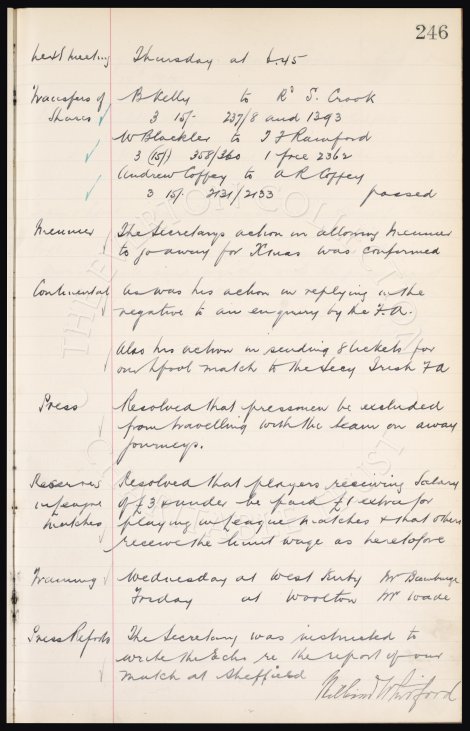 246
Next Meeting Thursday at 6.45
Transfers of B Kelly to Rd S. Crook
Shares 3 15/- 237/8 and 1293
W Blackler to J F Rainford
3 (15/) 358/360 1 free 2362
Andrew Coffey to A R Coffey
3 15/- 2131/2133 passed
Meunier The Secretarys action in allowing Meunier
to go away for Xmas was confirmed
Continental as was his action in replying in the
negative to an enquiry by the F.A.
Also his action in sending 8 tickets for
our Lpool match to the Secy Irish F A
Press Resolved that pressmen be excluded
from travelling with the team on away
journeys.
Reserves Resolved that players receiving Salary
in League of £3 & under be paid £1 extra for
Matches playing in League Matches & that others
receive the limit wage as heretofore
Training Wednesday at West Kirby Mr Bainbridge
Friday at Woolton Mr Wade
Press Reports The Secretary was instructed to
write the Echo re the report of our
match at Sheffield